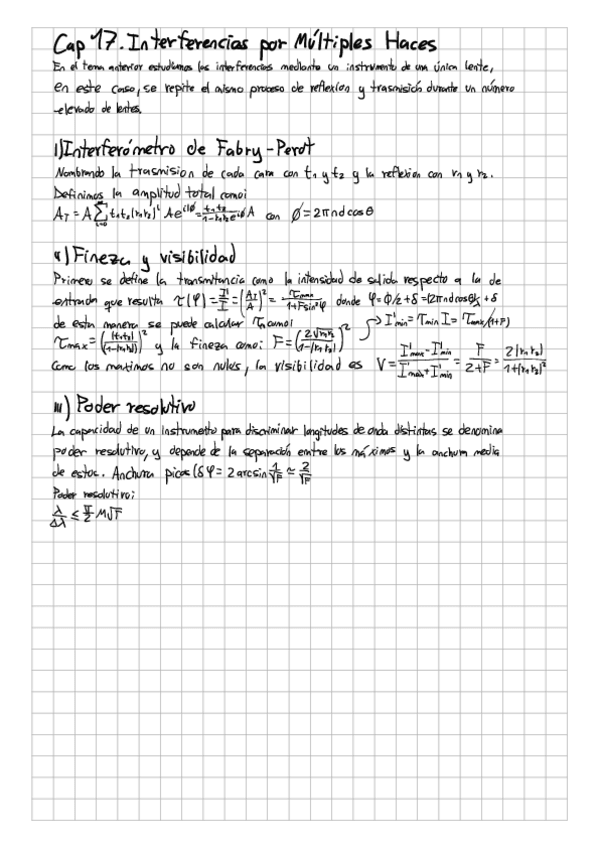 Cap 17. Interferencias por Múltiples Haces
En el tema anterior estudiamos las interferencias mediante un instrumento de una única lente,
en este caso, se repite el mismo proceso de reflexión y trasmisión durante un número
elevado de lentes.
I) Interferómetro de Fabry-Perot
Nombrando la trasmision de cada cara con t₁ y t₂ y la reflexion con r₁ y r₂.
Definimos la amplitud total como:
A_T = A Σ t₁t₂(r₁r₂)^i A e^{iiø} = t₁t₂/(1-r₁r₂e^{iø}) A con ø = 2πndcosθ
II) Fineza y visibilidad
Primero se define la transmitancia como la intensidad de salida respecto a la de
entrada que resulta τ(φ) = I'/I = (A_T/A)² = τmax/(1+F sin²φ) donde φ = ϕ/2 + δ = (2πndcosθ)/λ + δ
de esta manera se puede calcular τ como: → I'min = τmin I = τmax/(1+F)
τmax = (|t₁t₂|/(1-|r₁r₂|))² y la fineza como: F = (2√r₁r₂/(1-|r₁r₂|))²
Como los maximos no son nulos, la visibilidad es V = (I'max - I'min)/(I'max + I'min) = F/(2+F) = 2|r₁r₂|/(1+|r₁r₂|²)
III) Poder resolutivo
La capacidad de un instrumento para discriminar longitudes de onda distintas se denomina
poder resolutivo, y depende de la separación entre los máximos y la anchura media
de estos. Anchura picos (δφ = 2 arcsin 1/√F ≃ 2/√F
Poder resolutivo:
λ/Δλ ≤ π/2 M√F